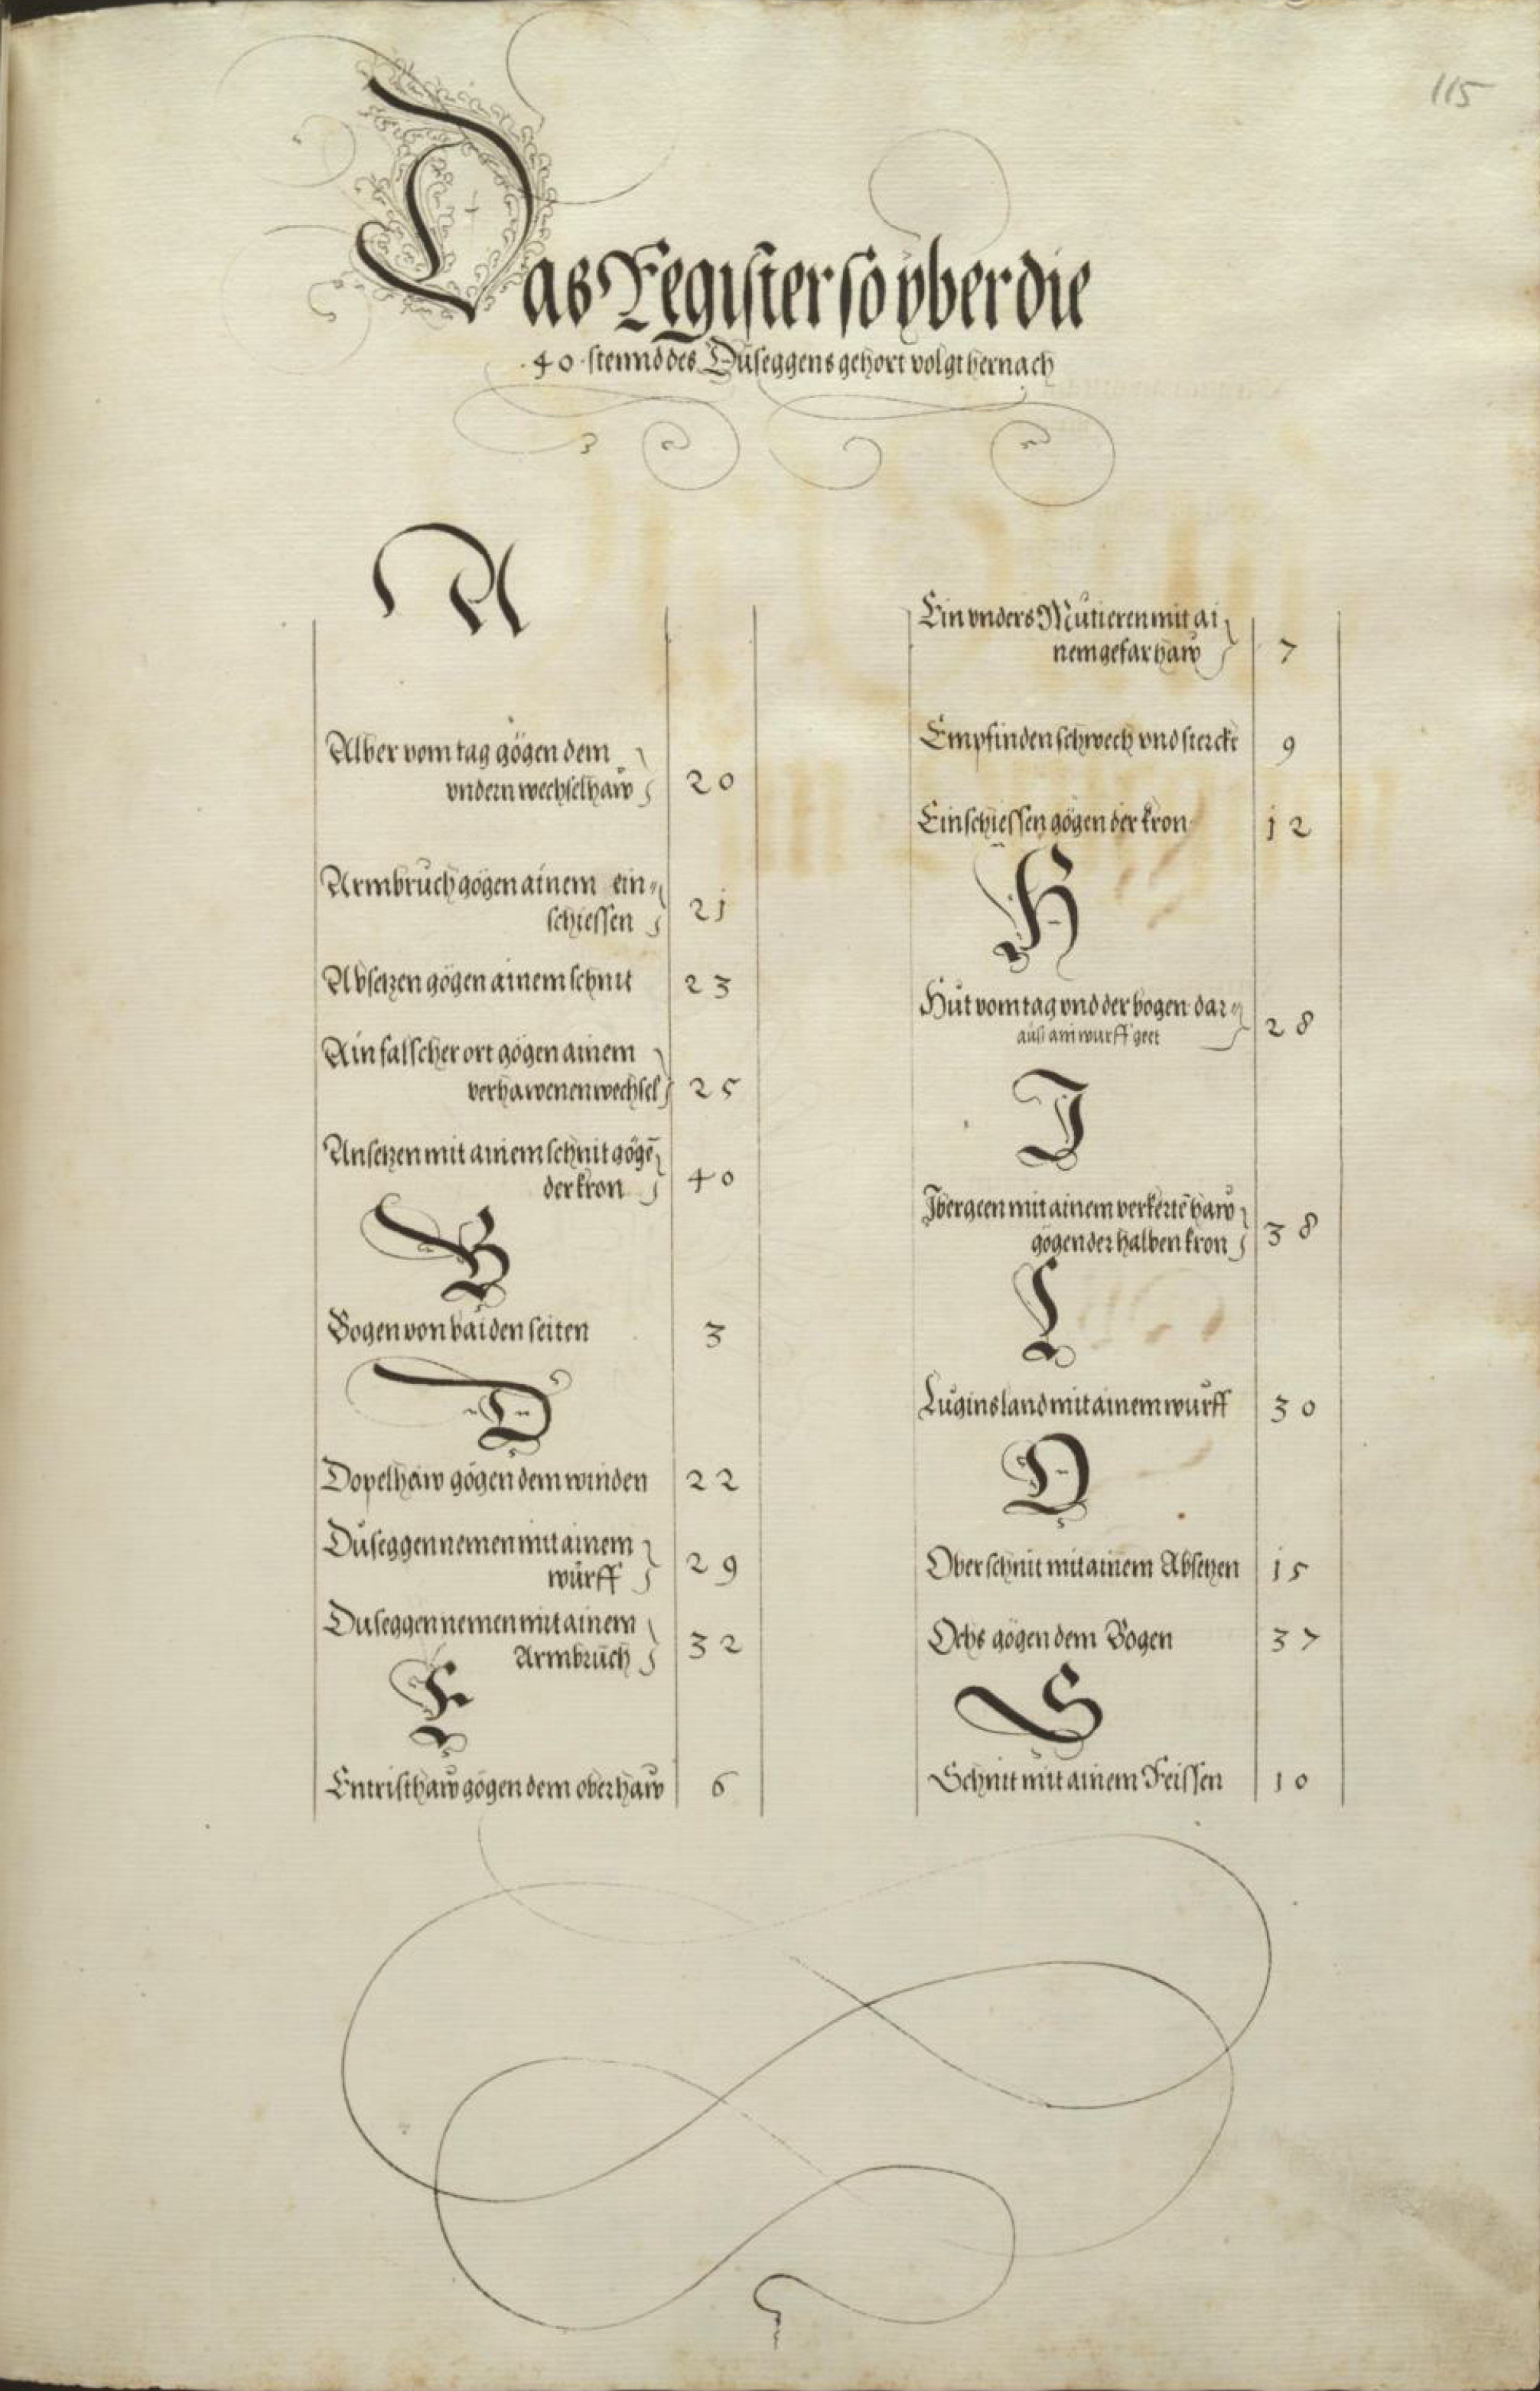 115
Das Register so yber die
·40· stennd des Duseggens gehort volgt hernach
A
Alber vom tag gögen dem
vndern wechselhaw 20
Armbruch gögen ainem ein„
schiessen 21
Absetzen gögen ainem schnit 23
Ain falscher ort gögen ainem
verhawenen wechsel 25
Ansetzen mit ainem schnit gögē
der kron 40
B
Bogen von baiden seiten 3
D
Dopelhaw gögen dem winden 22
Duseggen nemen mit ainem
wurff 29
Duseggen nemen mit ainem
Armbruch 32
E
Entristhaw gögen dem oberhaw 6
Ein vnders Mutieren mit ai
nem gefarhaw 7
Empfinden schwech vnd stercke 9
Einschiessen gögen der kron 12
H
Hut vom tag vnd der bogen dar„
auß ain wurff geet 28
I
Ibergeen mit ainem verkertē haw
gögen der halben kron 38
L
Luginsland mit ainem wurff 30
O
Ober schnit mit ainem Absetzen 15
Ochs gögen dem Bogen 37
S
Schnit mit ainem Reissen 10